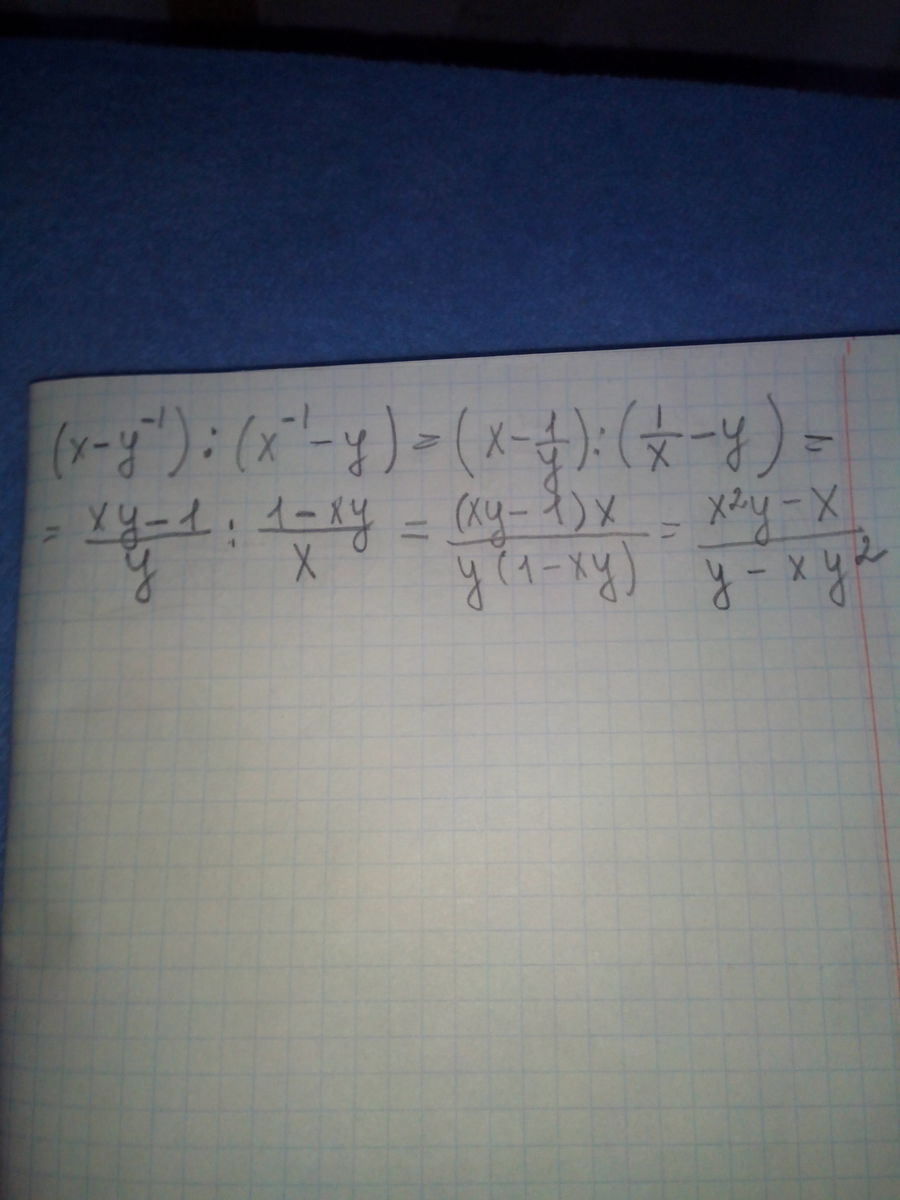 (x-y⁻¹):(x⁻¹-y)=(x-1/y):(1/x-y)=
=(xy-1)/y:(1-xy)/x=((xy-1)x)/(y(1-xy))=(x²y-x)/(y-xy²)